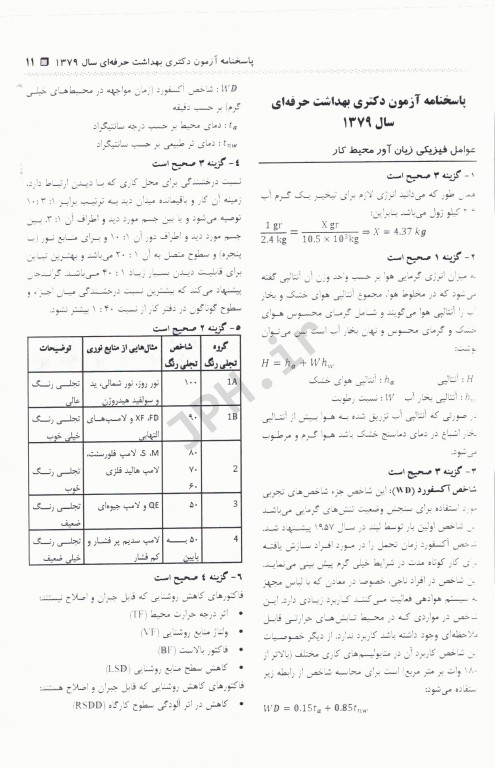 پاسخنامه آزمون دکتری بهداشت حرفه‌ای سال ۱۳۷۹ ۱۱
پاسخنامه آزمون دکتری بهداشت حرفه‌ای
سال ۱۳۷۹
عوامل فیزیکی زیان آور محیط کار
۱- گزینه ۳ صحیح است
همان طور که می‌دانید انرژی لازم برای تبخیر یک گرم آب
کیلو ژول می‌باشد بنابراین:
1 gr / 2.4 kg = X gr / 10.5 × 10³ kg ⇒ X = 4.37 kg
۲- گزینه ۱ صحیح است
به میزان انرژی گرمایی هوا بر حسب واحد وزن آن آنتالپی گفته
می‌شود که در مخلوط هوا، مجموع آنتالپی هوای خشک و بخار
آب را آنتالپی هوا می‌گویند و شامل گرمای محسوس هوای
خشک و گرمای محسوس و نهان بخار آب است پس می‌توان
نوشت:
H = hₐ + Wh_w
H : آنتالپی hₐ : آنتالپی هوای خشک
h_w : آنتالپی بخار آب W : نسبت رطوبت
در صورتی که آنتالپی آب تزریق شده به هوا بیش از آنتالپی
بخار اشباع در دمای دماسنج خشک باشد هوا گرم و مرطوب
می‌شود.
۳- گزینه ۳ صحیح است
شاخص آکسفورد (WD): این شاخص جزء شاخص‌های تجربی
مورد استفاده برای سنجش وضعیت تنش‌های گرمایی می‌باشد
این شاخص اولین بار توسط لیند در سال ۱۹۵۷ پیشنهاد شد.
شاخص آکسفورد زمان تحمل را در مورد افراد سازش یافته
برای کار کوتاه مدت در شرایط خیلی گرم پیش بینی می‌نماید.
این شاخص در افراد ناجی، خصوصا در معادن که با لباس مجهز
به سیستم هوادهی فعالیت می‌کنند کاربرد زیادی دارد. این
شاخص در مواردی که در محیط تابش‌های حرارتی قابل
ملاحظه‌ای وجود داشته باشد کاربرد ندارد. از دیگر خصوصیات
این شاخص کاربرد آن در متابولیسم‌های کاری مختلف (بالاتر از
۱۸۰ وات بر متر مربع) است برای محاسبه شاخص از رابطه زیر
استفاده می‌شود:
WD = 0.15tₐ + 0.85t_nw
WD : شاخص آکسفورد (زمان مواجهه در محیط‌های خیلی
گرم) بر حسب دقیقه
tₐ : دمای محیط بر حسب درجه سانتیگراد
t_nw : دمای تر طبیعی بر حسب سانتیگراد
۴- گزینه ۳ صحیح است
نسبت درخشندگی برای محل کاری که با دیدن ارتباط دارد،
زمینه آن کار و باقیمانده میدان دید به ترتیب برابر ۱ :۳ :۱۰
توصیه می‌شود و یا بین جسم مورد دید و اطراف آن ۱: ۳، بین
جسم مورد دید و اطراف دور آن ۱: ۱۰ و برای منابع نور (یا
پنجره) و سطوح متصل به آن ۱ : ۲۰ می‌باشد و بهترین تباین
برای قابلیت دیدن بسیار زیاد ۱ : ۴۰ می‌باشد. گرانجان
پیشنهاد می‌کند که بیشترین نسبت درخشندگی میان اجزاء و
سطوح گوناگون در دفتر کار از نسبت ۴۰ : ۱ بیشتر نشود.
۵- گزینه ۲ صحیح است
گروه تجلی رنگ شاخص تجلی رنگ مثال‌هایی از منابع نوری توضیحات
1A ۱۰۰ نور روز، نور شمالی، ید و سولفید هیدروژن تجلی رنگ عالی
1B ۹۰ XF ،FD و لامپ‌های التهابی تجلی رنگ خیلی خوب
2 ۸۰ ۷۰ ۶۰ S ،M، لامپ فلورسنت، لامپ هالید فلزی تجلی رنگ خوب
3 ۵۰ QE و لامپ جیوه‌ای تجلی رنگ ضعیف
4 ۵۰ به پایین لامپ سدیم پر فشار و کم فشار تجلی رنگ خیلی ضعیف
۶- گزینه ۴ صحیح است
فاکتورهای کاهش روشنایی که قابل جبران و اصلاح نیستند:
• اثر درجه حرارت محیط (TF)
• ولتاژ منابع روشنایی (VF)
• فاکتور بالاست (BF)
• کاهش سطح منابع روشنایی (LSD)
فاکتورهای کاهش روشنایی که قابل جبران و اصلاح هستند:
• کاهش در اثر آلودگی سطوح کارگاه (RSDD)
JPH.ir